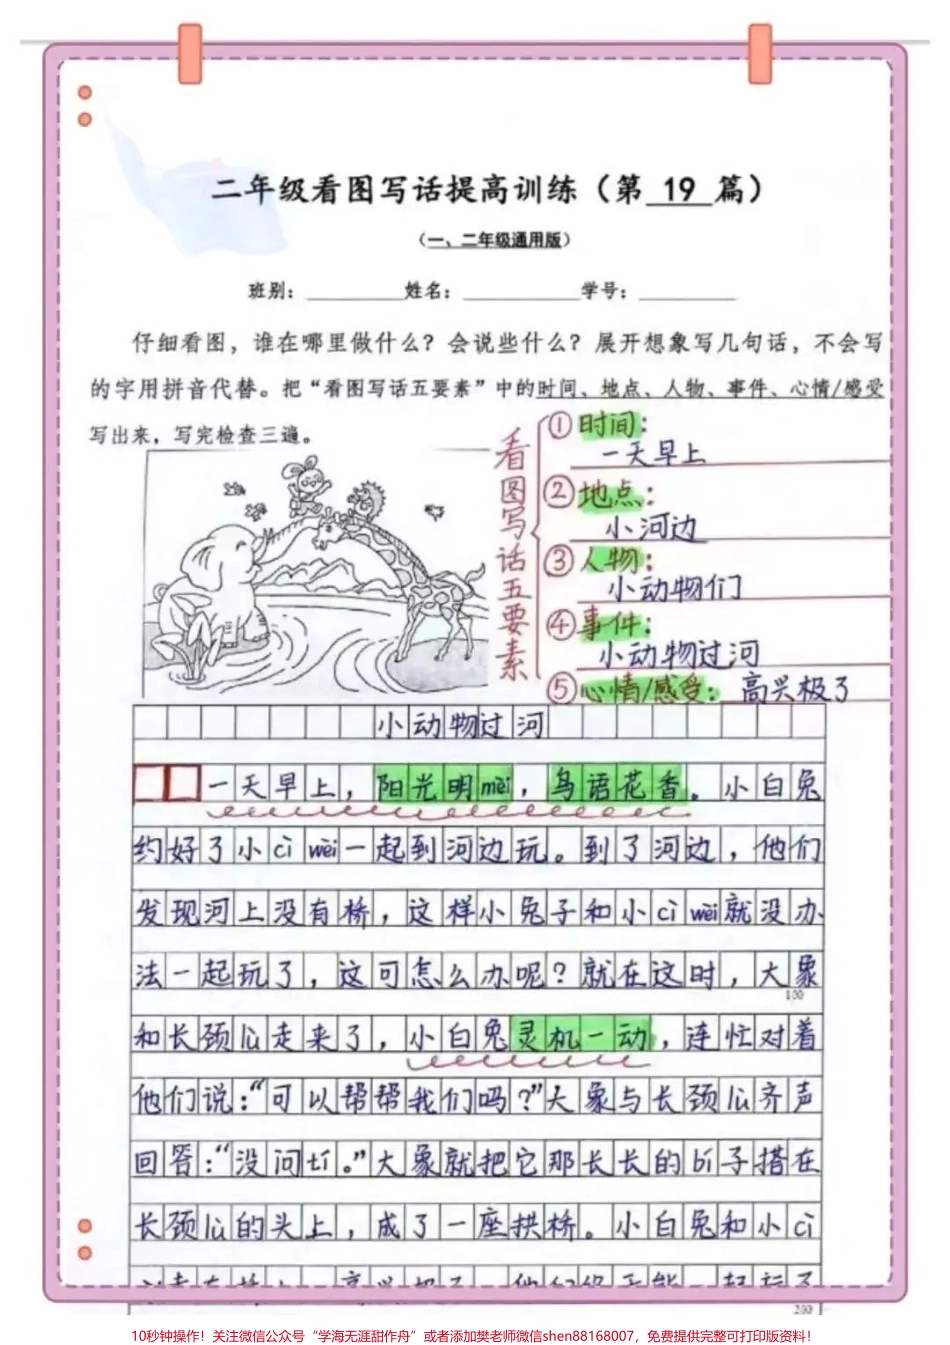 二年级看图写话提高训练（第 19 篇）
（一、二年级通用版）
班别：________姓名：________学号：________
仔细看图，谁在哪里做什么？会说些什么？展开想象写几句话，不会写
的字用拼音代替。把“看图写话五要素”中的时间、地点、人物、事件、心情/感受
写出来，写完检查三遍。
看图写话五要素
①时间：
一天早上
②地点：
小河边
③人物：
小动物们
④事件：
小动物过河
⑤心情/感受：高兴极了
小动物过河
一天早上，阳光明mèi，鸟语花香。小白兔
约好了小cì wèi一起到河边玩。到了河边，他们
发现河上没有桥，这样小兔子和小cì wèi就没办
法一起玩了，这可怎么办呢？就在这时，大象
100
和长颈lù走来了，小白兔灵机一动，连忙对着
他们说：“可以帮帮我们吗？”大象与长颈lù齐声
回答：“没问tí。”大象就把它那长长的bí子搭在
长颈lù的头上，成了一座拱桥。小白兔和小cì
200
10秒钟操作！关注微信公众号“学海无涯甜作舟”或者添加樊老师微信shen88168007，免费提供完整可打印版资料！